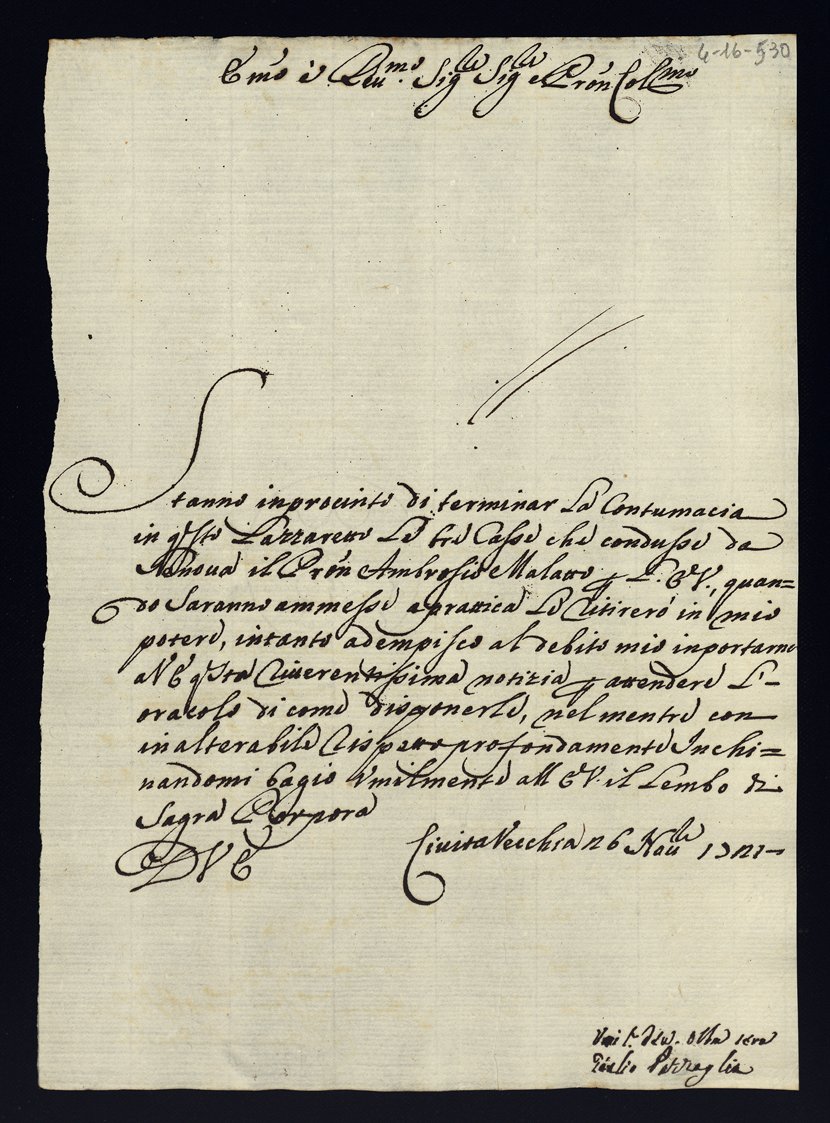 4-16-530
Emo è Reumo. Sigle Sigle e Pron Colmo
Stanno inprocinto di terminar Le Contumacia
in qsto Lazzaretto Le tre Casse che condusse da
Genova il Pron Ambrosio Malatto p L'E.V., quan=
do Saranno ammesse a prattica Le Ritirerò in mio
potere, intanto adempisco al debito mio inportarne
al V E qsta Riuerentissima notizia p attendere L'-
oracolo di come disponerle, nel mentre con
inalterabile Rispetto profondamente Inchi=
nandomi bagio Vmilmente all E.V. il Lembo di
Sagra Porpora
D V E
CiuitaVecchia 26 Noule 1721
Vmi Deu. Obb seruo
Giulio Pazzaglia